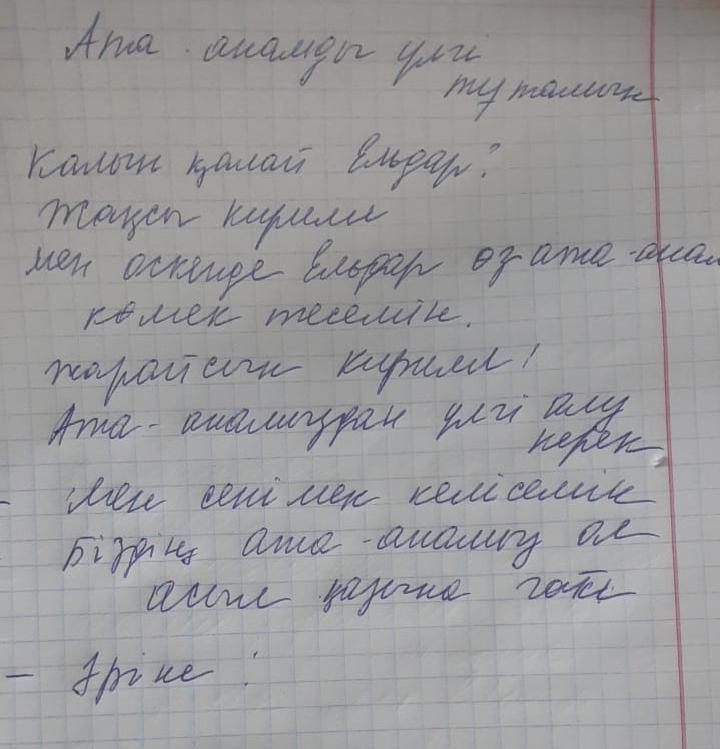 Ата-анамды үлгі
тұтамын
Калын қалай Ельдар?
Жақсы кирилл
мен оскенде Ельдар өз ата-анам
көмек теселін.
жарайсын кирилл!
Ата-анамыздан үлгі алу
керек
- Мен сенімен келісемін
Біздің ата-анамыз ол
асыл қазына
- Әрине!